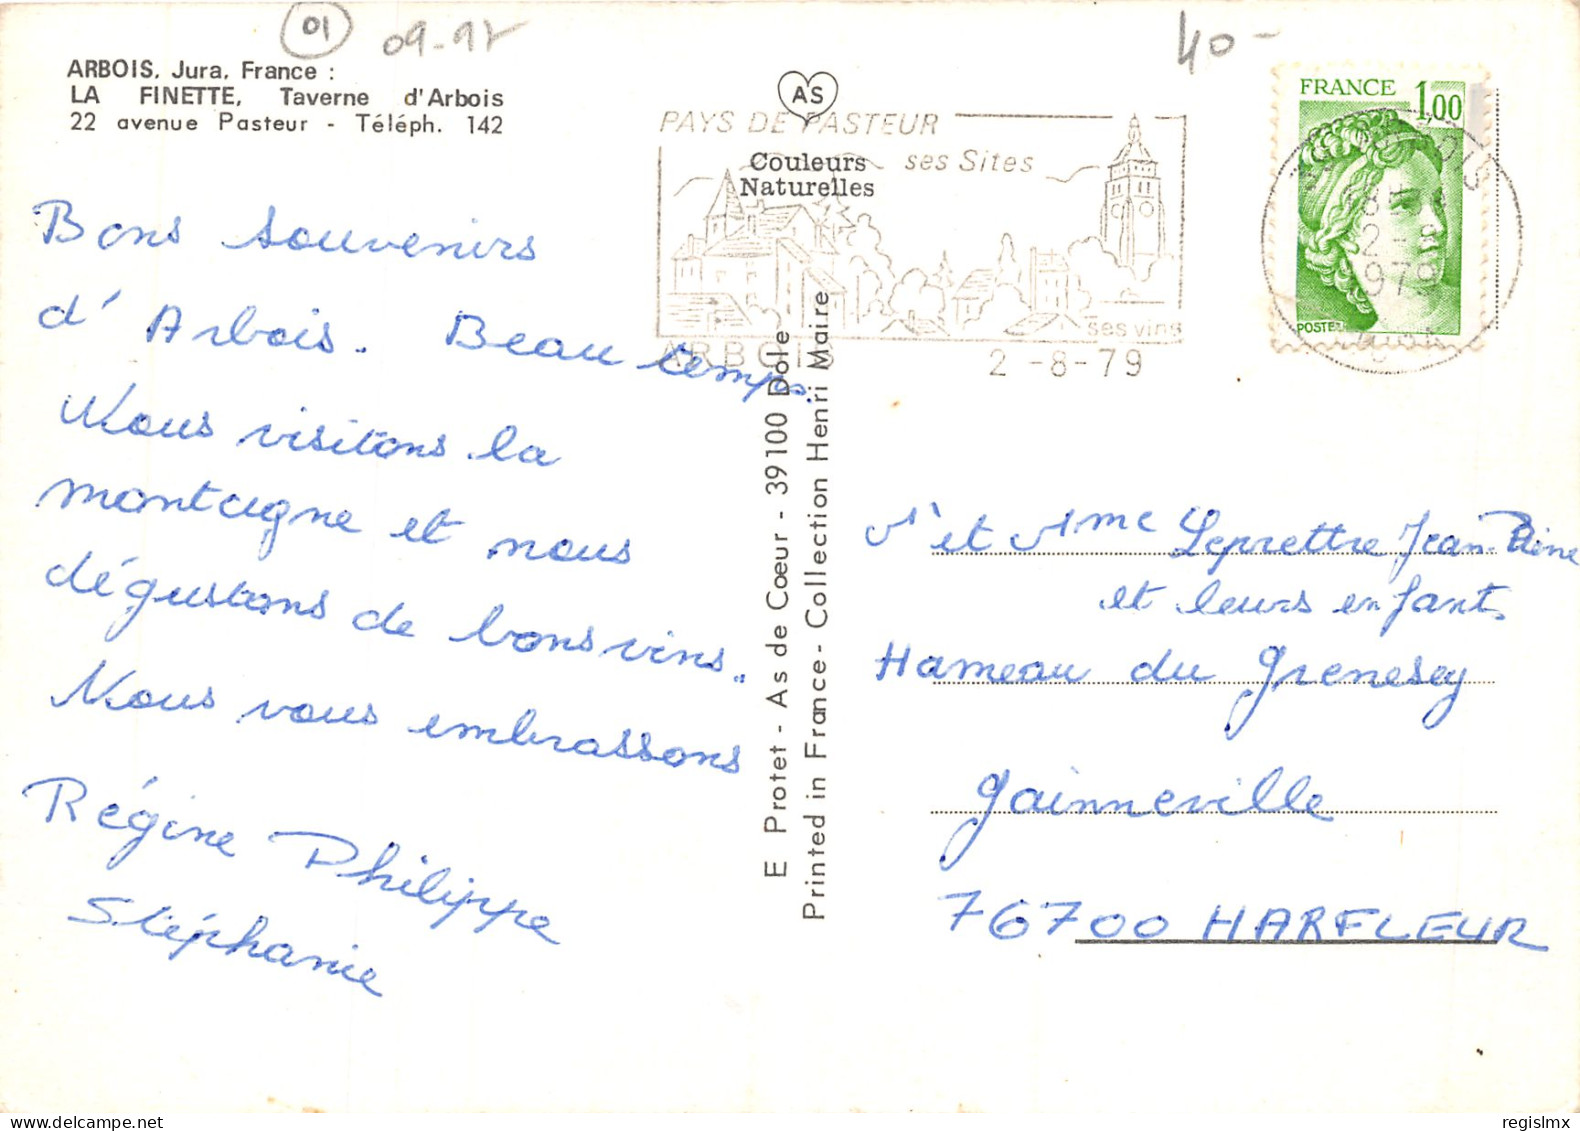 01
09-97
40-
ARBOIS, Jura, France :
LA FINETTE, Taverne d'Arbois
22 avenue Pasteur - Téléph. 142
AS
PAYS DE PASTEUR
Couleurs
Naturelles
ses Sites
ses vins
ARBOIS
2-8-79
FRANCE
1,00
POSTE
979
Bons souvenirs
d'Arbois. Beau temps.
Nous visitons la
montagne et nous
dégustons de bons vins.
Nous vous embrassons
Régine Philippe
Stéphanie
E Protet - As de Cœur - 39100 Dole
Printed in France - Collection Henri Maire
Mr et Mme Leprettre Jean-
et leurs enfants
Hameau du Grenesey
Gainneville
76700 HARFLEUR
regislmx